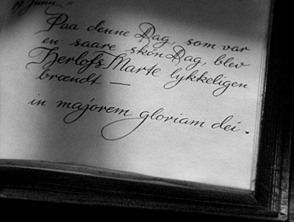 Juni."
Paa denne Dag, som var
en saare skøn Dag, blev
Herlofs Marte lykkeligen
brændt —
in majorem gloriam dei.